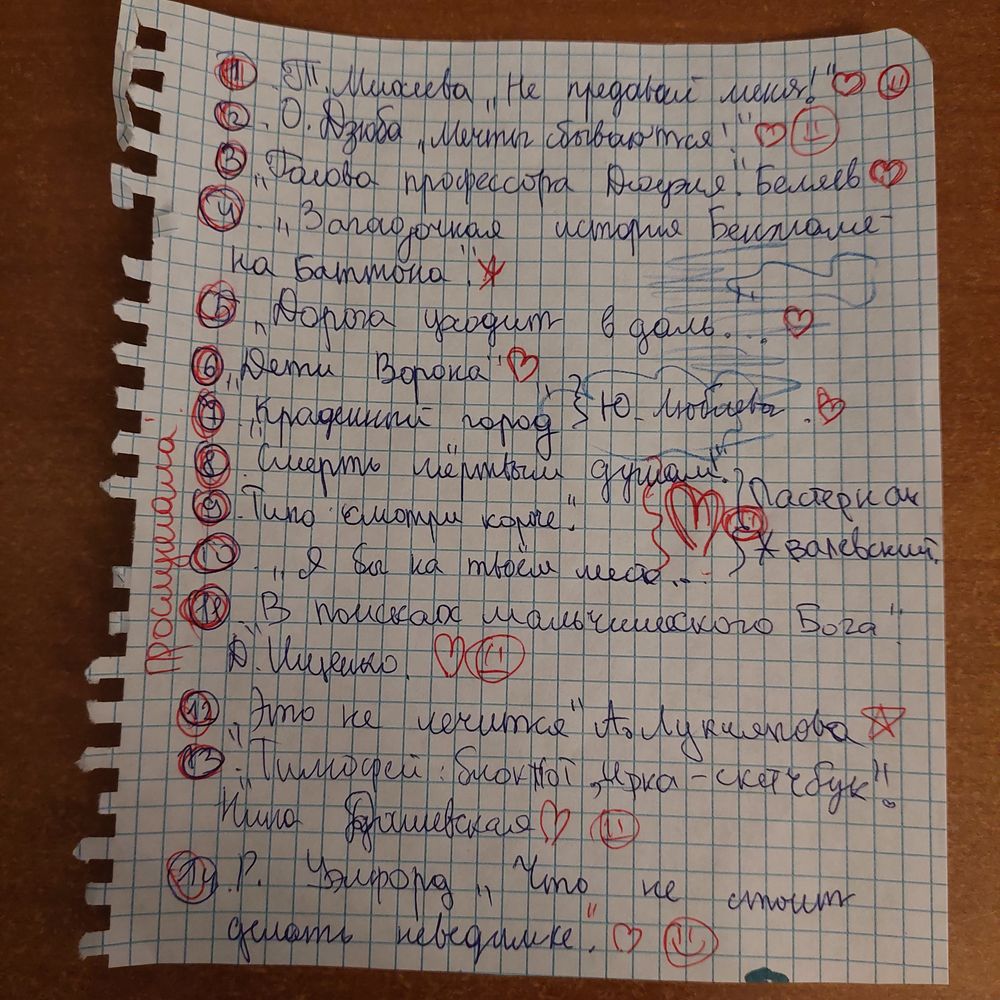 1. Т. Михеева „Не предавай меня!"
2. О. Дзюба „Мечты сбываются!"
3. „Голова профессора Доуэля". Беляев
4. „Загадочная история Бенжаме-
на Баттона".
5. „Дорога уходит в даль...
6. „Дети Ворона"
7. „Краденный город" Ю. Яковлева.
8. „Смерть мёртвым душам!"
9. Типа смотри короче".
10. „Я бы на твоём месте...
Пастернак
Жвалевский
11. „В поисках мальчишеского Бога".
Д. Ищенко.
12. „Это не лечится" А. Лукиянова
13. „Тимофей: блокнот, ирка-скетчбук".
Нина Дашевская
14. Р. Уэлфорд „Что не стоит
делать неведимке".
Прослушала: